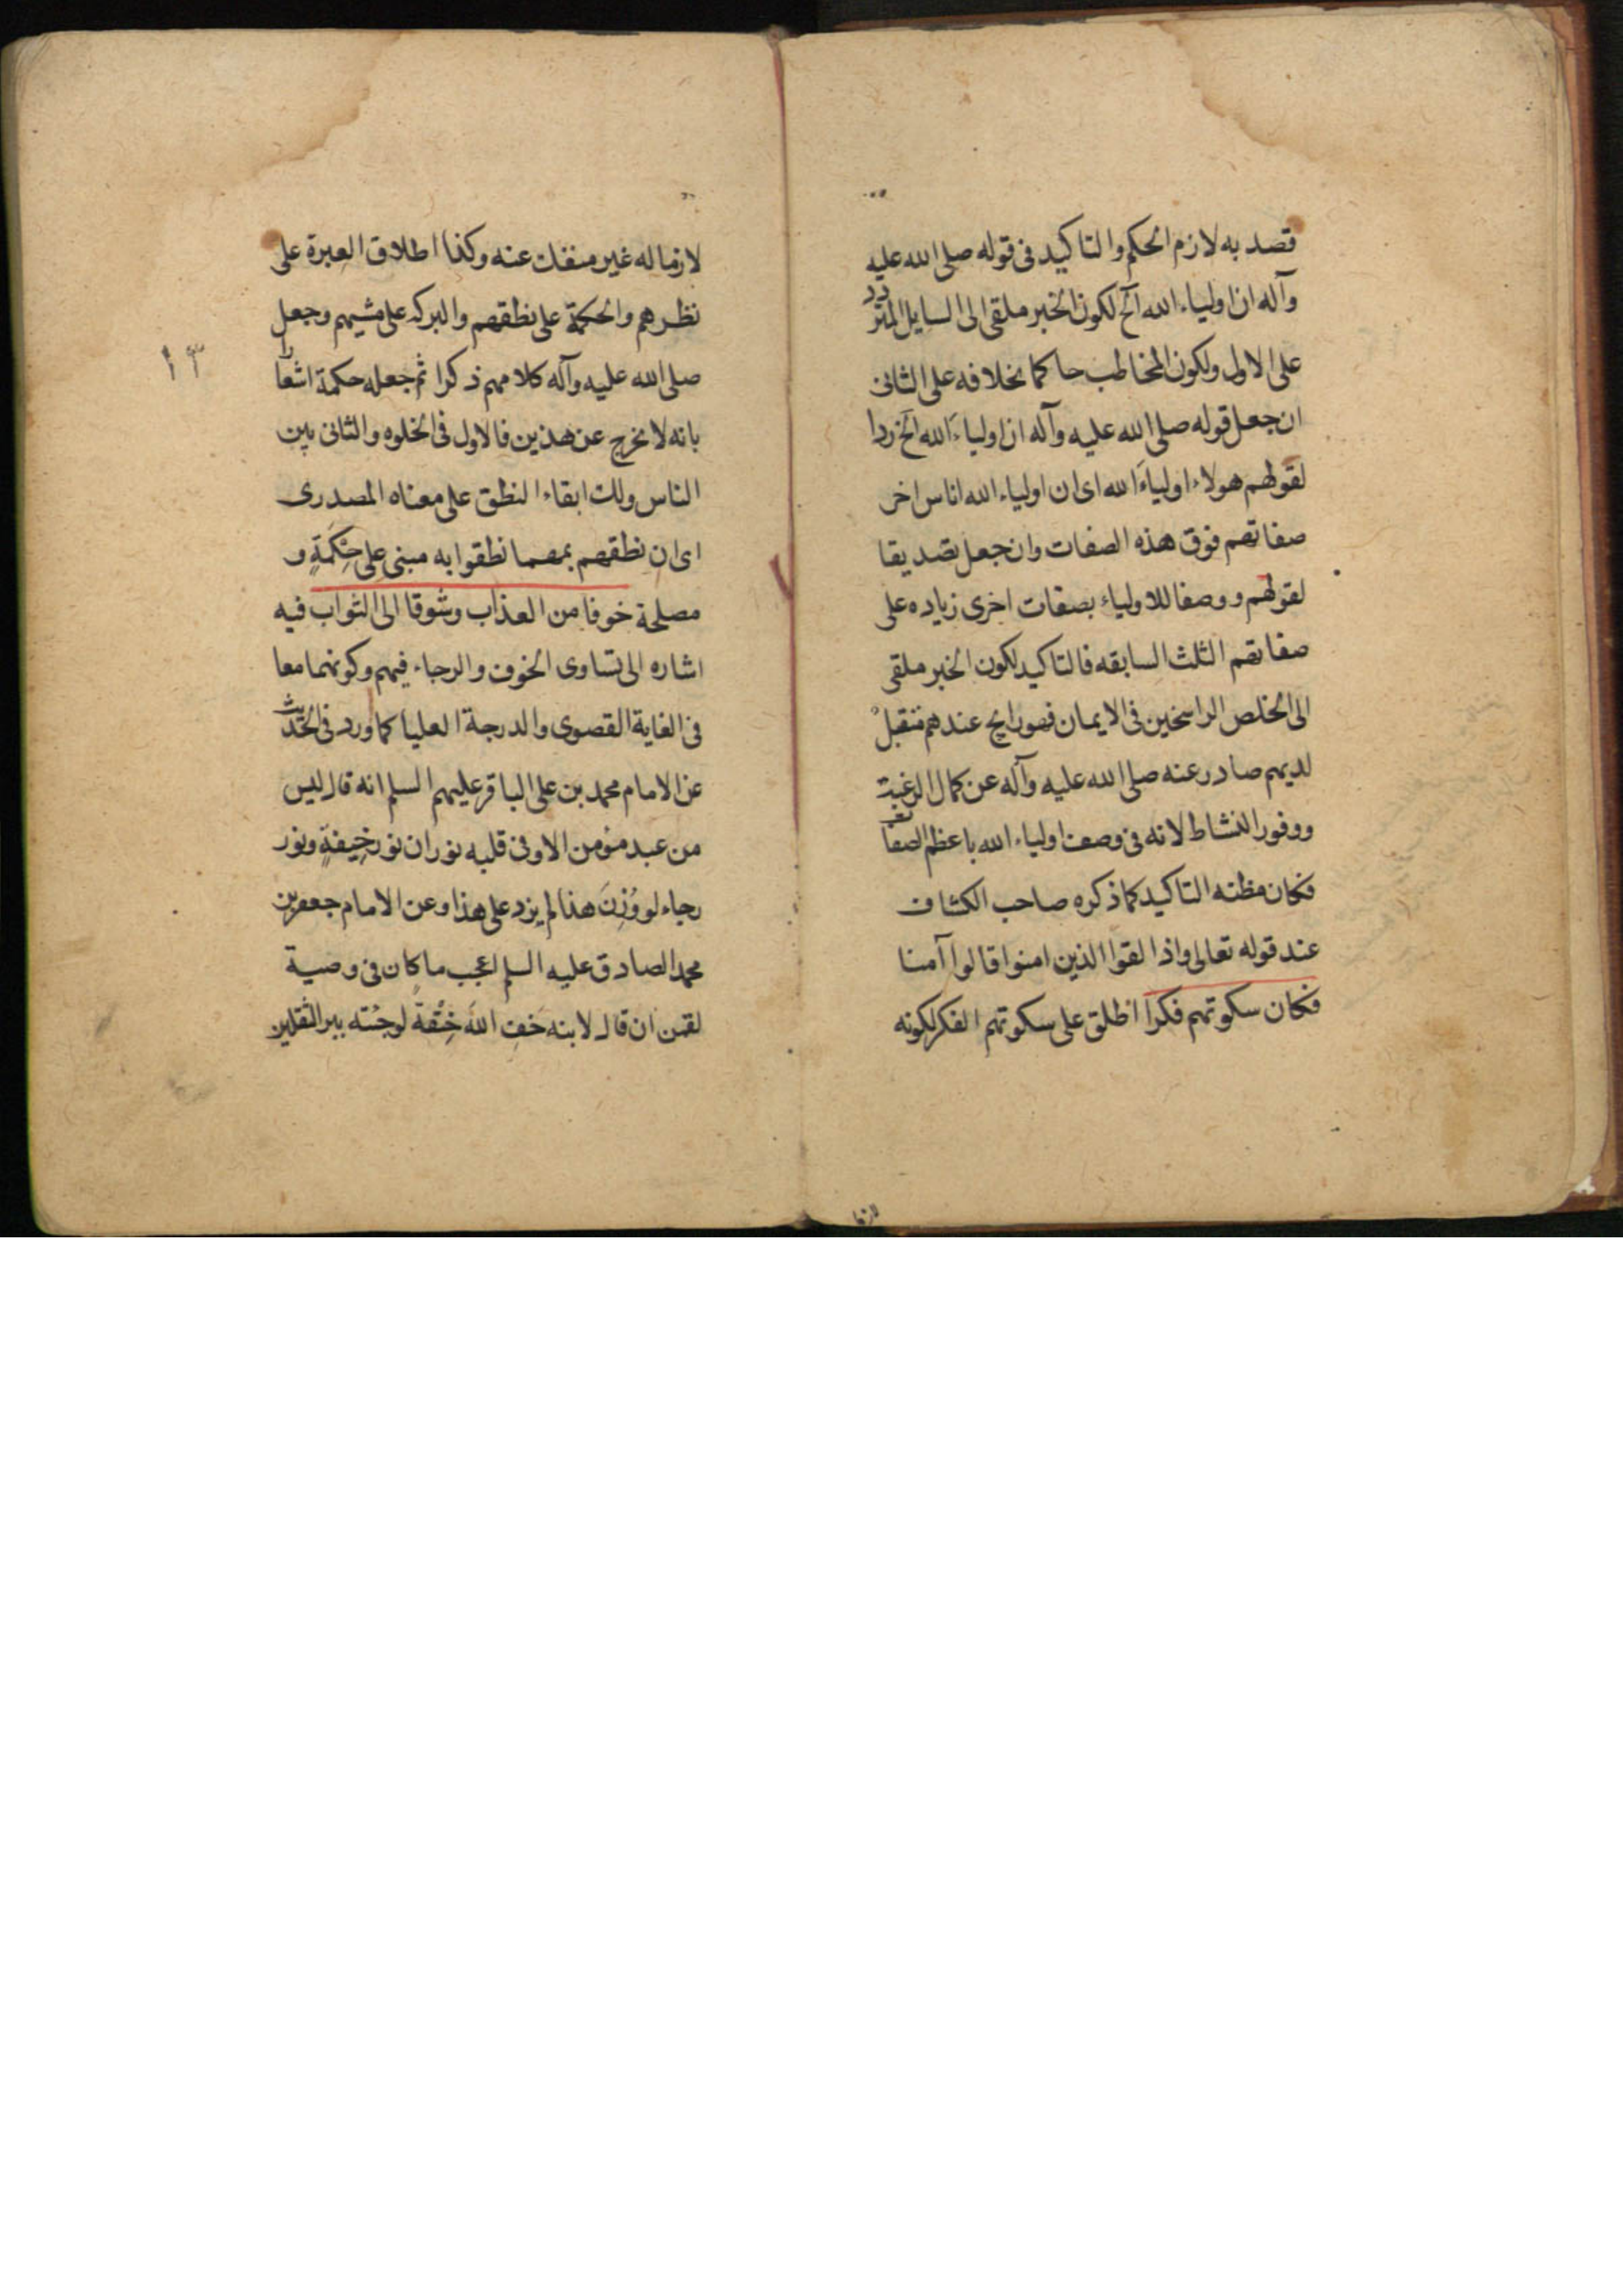 قصد به لازم الحكم والتاكيد فى قوله صلى الله عليه
وآله ان اولياء الله الخ لكون الخبر ملقى الى السايل المتردد
على الاول ولكون المخاطب حاكما بخلافه على الثانى
ان جعل قوله صلى الله عليه وآله ان اولياء الله الخ ردا
لقولهم هولاء اولياء الله اى ان اولياء الله اناس اخر
صفاتهم فوق هذه الصفات وان جعل تصديقا
لقولهم ووصفا للاولياء بصفات اخرى زياده على
صفاتهم الثلث السابقه فالتاكيد لكون الخبر ملقى
الى الخلص الراسخين فى الايمان فهو رايج عندهم متقبل
لديهم صادر عنه صلى الله عليه وآله عن كمال الرغبة
ووفور النشاط لانه فى وصف اولياء الله باعظم الصفات
فكان مظنه التاكيد كما ذكره صاحب الكشاف
عند قوله تعالى واذا لقوا الذين امنوا قالوا آمنا
فكان سكوتهم فكرا اطلق على سكوتهم الفكر لكونه
لازما
١٣
لازما له غير منفك عنه وكذا اطلاق العبرة على
نظرهم والحكمة على نطقهم والبركه على مشيهم وجعل
صلى الله عليه وآله كلامهم ذكرا ثم جعله حكمة اشعارا
بانه لا يخرج عن هذين فالاول فى الخلوه والثانى بين
الناس ولك ابقاء النطق على معناه المصدرى
اى ان نطقهم بمهما نطقوا به مبنى على حِكْمَةٍ و
مصلحة خوفا من العذاب وشوقا الى الثواب فيه
اشاره الى تساوى الخوف والرجاء فيهم وكونهما معا
فى الغاية القصوى والدرجة العليا كما ورد فى الحديث
عن الامام محمد بن على الباقر عليهم السلم انه قال ليس
من عبد مؤمن الا وفى قلبه نوران نور خِيفةٍ ونور
رجاء لو وُزِنَ هذا لم يزد على هذا وعن الامام جعفر بن
محمد الصادق عليه السلم اعجب ما كان فى وصية
لقمن ان قال لابنه خفِ اللهَ خِيْفَةً لو جِئته ببر الثقلين